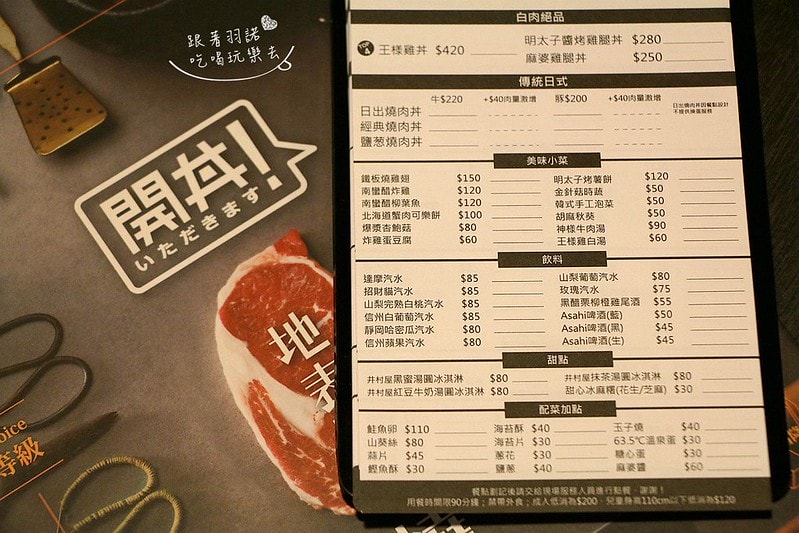 跟著羽諾
吃喝玩樂去
開丼!
いただきます
地表
oice
等級
白肉絕品
王様雞丼 $420
明太子醬烤雞腿丼 $280
麻婆雞腿丼 $250
傳統日式
牛$220 +$40肉量激增 豚$200 +$40肉量激增
日出燒肉丼
經典燒肉丼
鹽葱燒肉丼
日出燒肉丼因餐點設計
不提供換蛋服務
美味小菜
鐵板燒雞翅 $150
南蠻醋炸雞 $120
南蠻醋柳葉魚 $120
北海道蟹肉可樂餅 $100
爆漿杏鮑菇 $80
炸雞蛋豆腐 $60
明太子烤薯餅 $120
金針菇時蔬 $50
韓式手工泡菜 $50
胡麻秋葵 $50
神樣牛肉湯 $90
王樣雞白湯 $60
飲料
達摩汽水 $85
招財貓汽水 $85
山梨完熟白桃汽水 $85
信州白葡萄汽水 $85
靜岡哈密瓜汽水 $80
信州蘋果汽水 $80
山梨葡萄汽水 $80
玫瑰汽水 $75
黑醋栗柳橙雞尾酒 $55
Asahi啤酒(藍) $50
Asahi啤酒(黑) $45
Asahi啤酒(生) $45
甜點
井村屋黑蜜湯圓冰淇淋 $80
井村屋紅豆牛奶湯圓冰淇淋 $80
井村屋抹茶湯圓冰淇淋 $80
甜心冰麻糬(花生/芝麻) $30
配菜加點
鮭魚卵 $110
山葵絲 $80
蒜片 $45
鰹魚酥 $30
海苔酥 $40
海苔片 $30
蔥花 $30
鹽蔥 $40
玉子燒 $40
63.5℃溫泉蛋 $30
糖心蛋 $30
麻婆醬 $60
餐點劃記後請交給現場服務人員進行點餐,謝謝!
用餐時間限90分鐘;禁帶外食;成人低消為$200、兒童身高110cm以下低消為$120